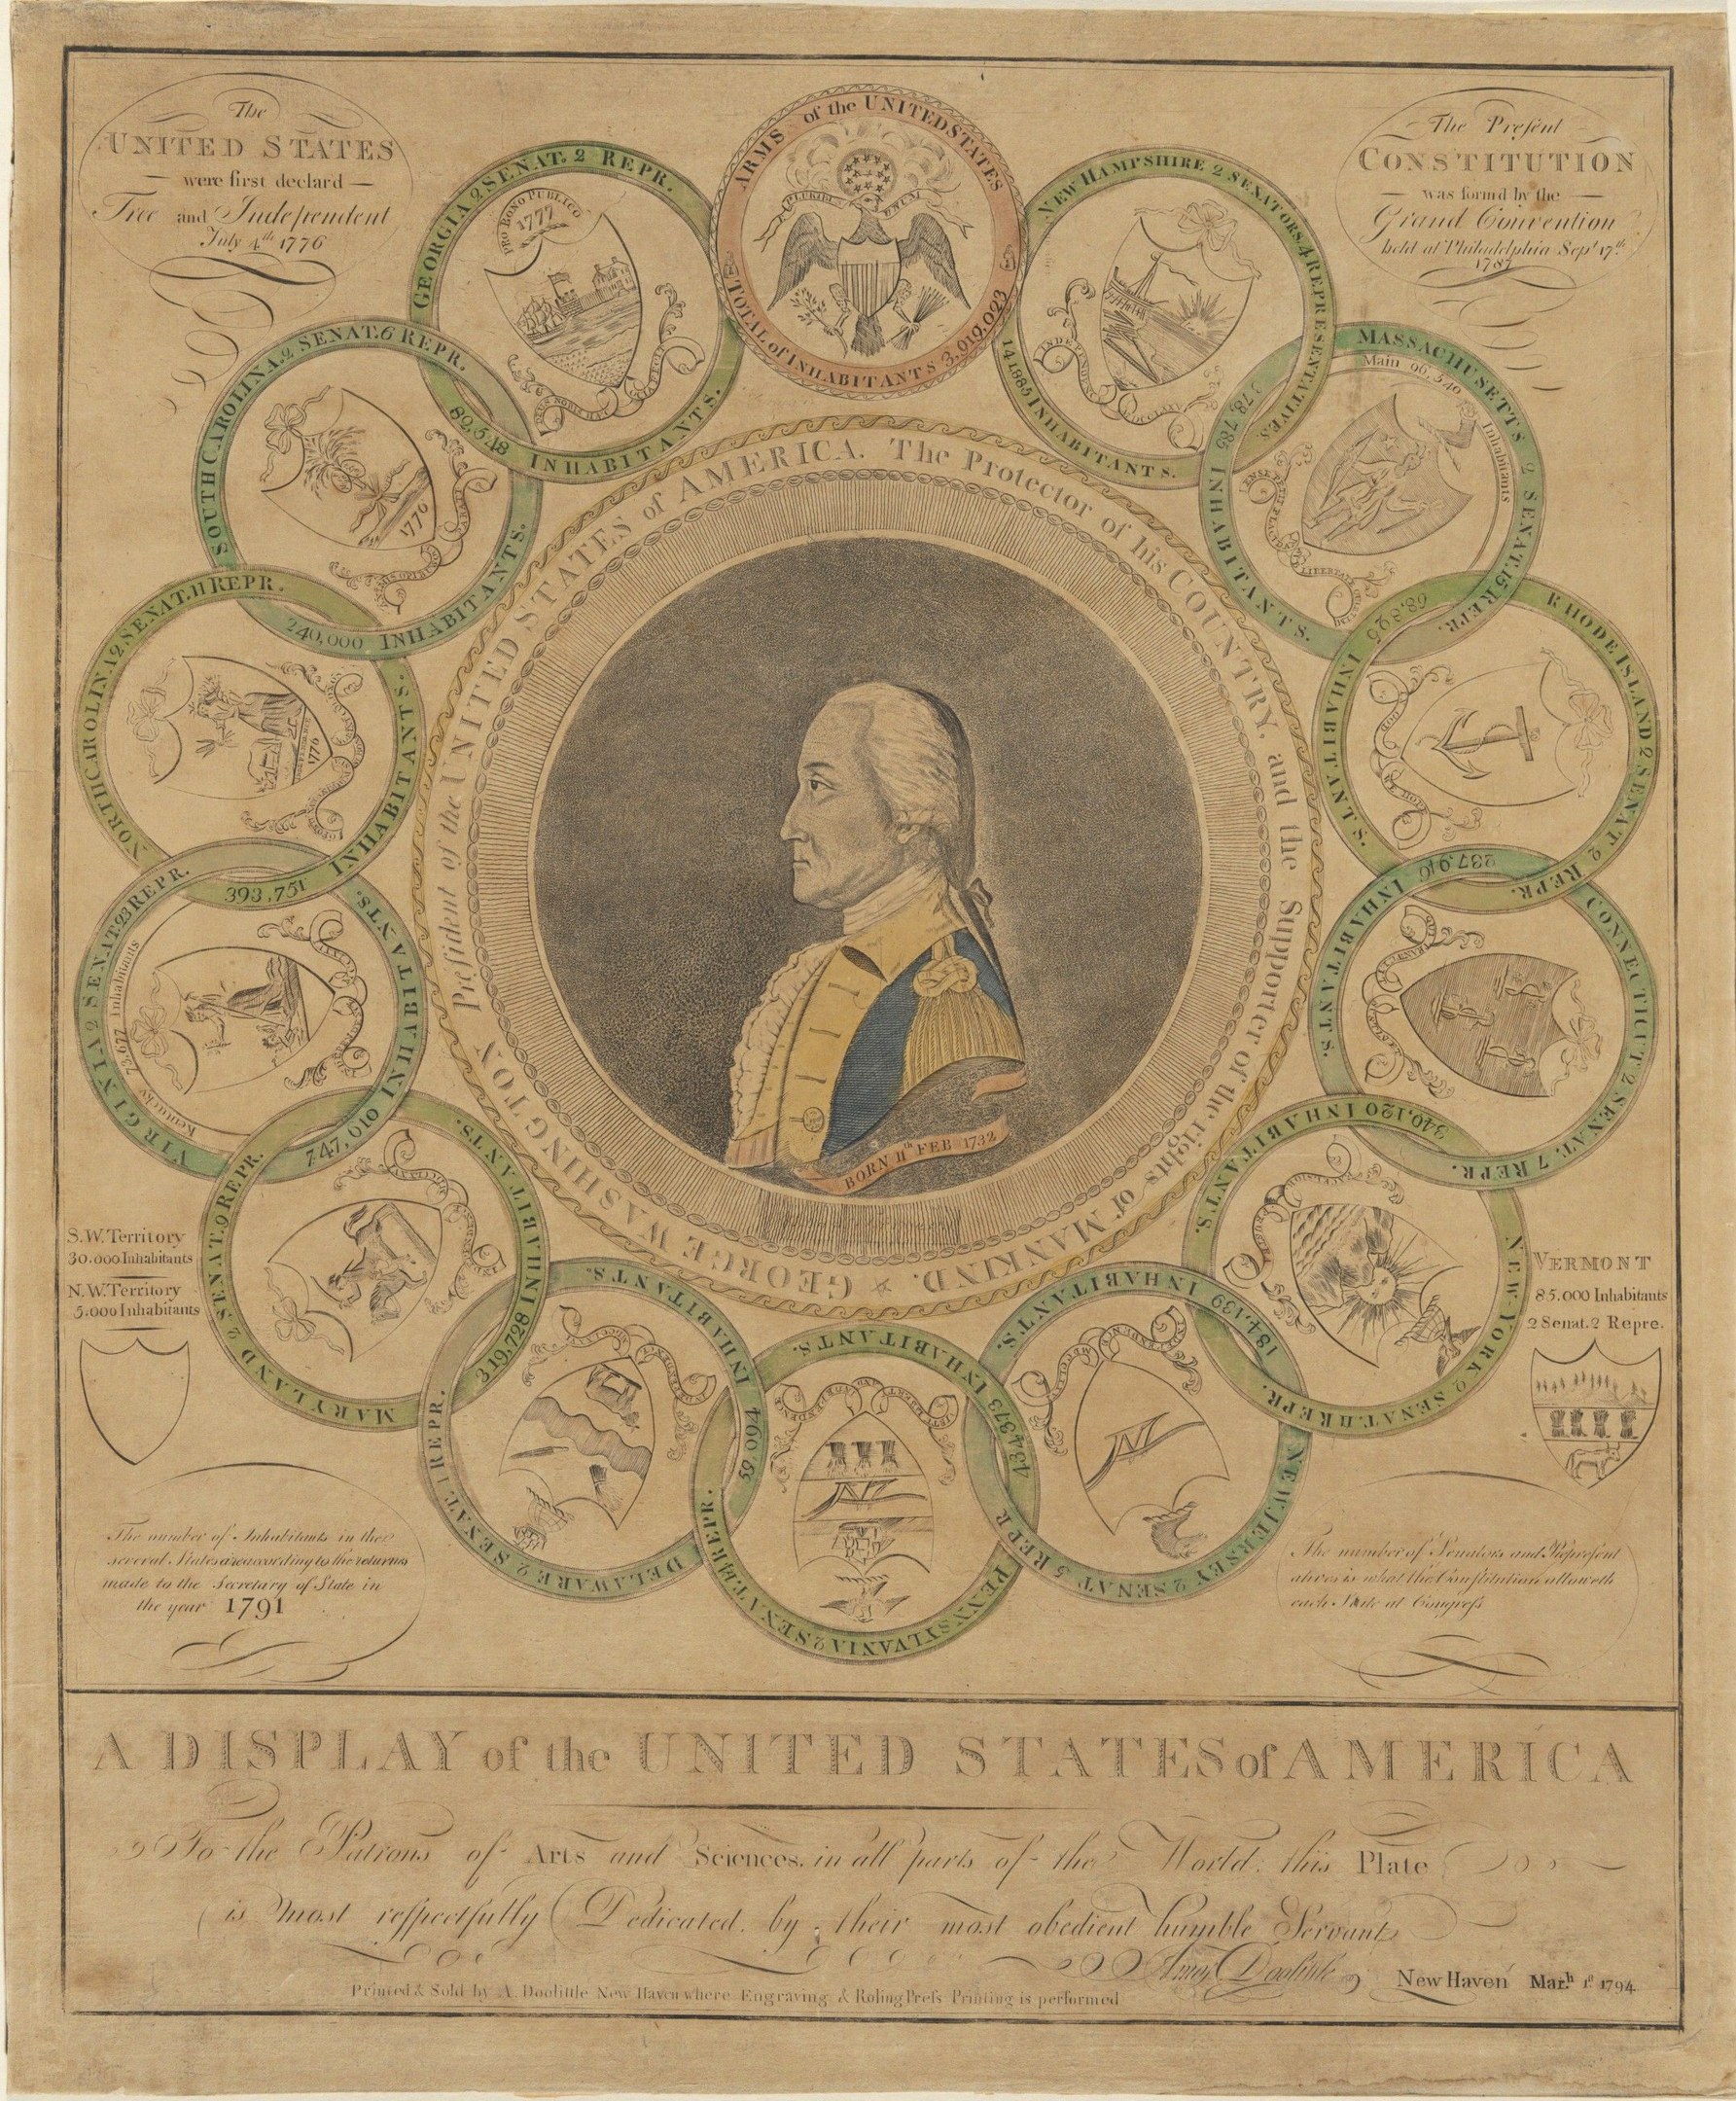 The
UNITED STATES
were first declard
Free and Independent
July 4.th 1776
The Present
CONSTITUTION
was form'd by the
Grand Convention
held at Philadelphia Sept 17th
1787
ARMS of the UNITED STATES
TOTAL of INHABITANTS 3,919,023
E PLURIBUS UNUM
NEW HAMPSHIRE 2 SENATORS 4 REPRESENTATIVES.
141885 INHABITANTS.
MASSACHUSETTS 2 SENAT. 15 REPR.
378,785 INHABITANTS.
Main 96,540 Inhabitants
RHODE ISLAND 2 SENAT 2 REPR.
68,825 INHABITANTS.
CONNECTICUT 2 SENAT. 7 REPR.
237,946 INHABITANTS.
NEW-YORK 2 SENAT. 11 REPR.
340,120 INHABITANTS.
NEW JERSEY 2 SENAT 5 REPR
184,139 INHABITANTS.
PENNSYLVANIA 2 SENAT. 14 REPR.
434,373 INHABITANTS.
DELAWARE 2 SENAT. 1 REPR.
59,094 INHABITANTS.
MARYLAND 2 SENAT. 9 REPR.
319,728 INHABITANTS.
VIRGINIA 2 SENAT. 23 REPR.
747,610 INHABITANTS.
Kentucky 73,677 Inhabitants
NORTHCAROLINA 2 SENAT. 11 REPR.
393,751 INHABITANTS.
1776
SOUTHCAROLINA. 2 SENAT. 6 REPR.
240,000 INHABITANTS.
1776
GEORGIA 2 SENAT. 2 REPR.
82,548 INHABITANTS.
PRO BONO PUBLICO
1777
GEORGE WASHINGTON President of the UNITED STATES of AMERICA. The Protector of his COUNTRY, and the Supporter of the rights of MANKIND.
BORN 11th FEB 1732
S.W. Territory
30.000 Inhabitants
N.W. Territory
5.000 Inhabitants
VERMONT
85.000 Inhabitants
2 Senat. 2 Repre.
The number of Inhabitants in the
several States are according to the returns
made to the Secretary of State in
the year 1791
The number of Senators and Represent
atives is what the Constitution alloweth
each State at Congress
A DISPLAY of the UNITED STATES of AMERICA
To the Patrons of Arts and Sciences, in all parts of the World, this Plate
is most respectfully Dedicated, by their most obedient humble Servant
Amos Doolittle New Haven Mar.h 1st 1794
Printed & Sold by A. Doolittle New Haven where Engraving & Roling Press Printing is performed